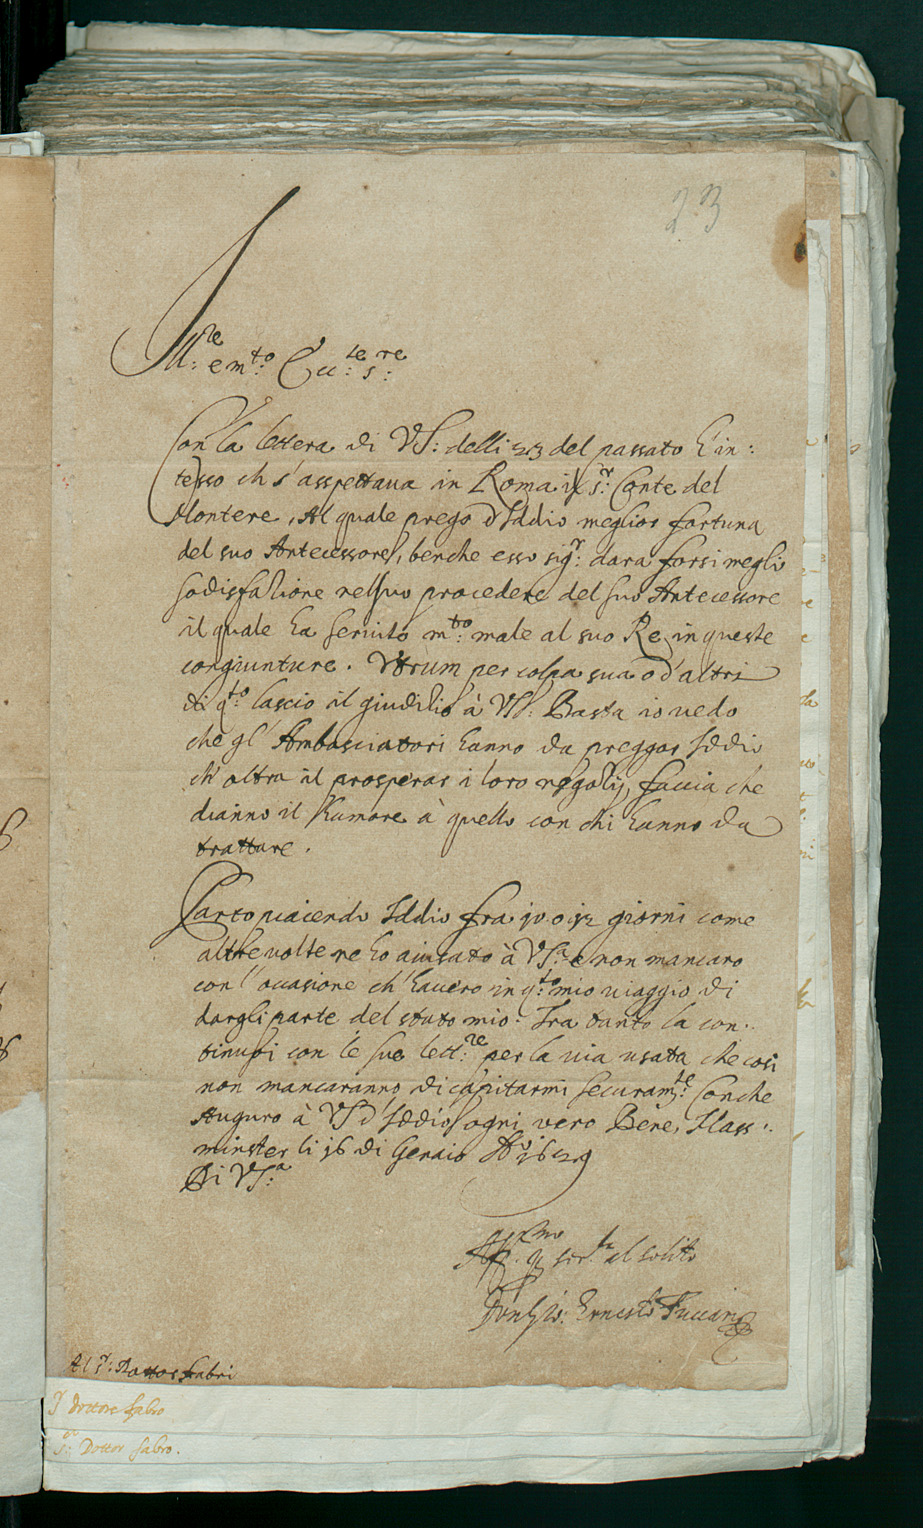 23
Ill:re e m:to Ecc:te s:re
Con la lettera di VS: delli 23 del passato hò in:
tesso ch s'asspettaua in Roma il s:r Conte del
Monterè, Al quale prego d'Iddio meglior fortuna
del suo Antecessore, benche esso sig:r dara forsi meglio
sodisfatione nel suo procedere del suo Antecessore
il quale ha seruito m:to male al suo Re in queste
congiunture. Vtrum per colpa sua o d'altri
di q:to lascio il giuditio à VS: Basta io vedo
che gl' Ambasciatori hanno da preggar Iddio
ch' oltra il prosperar i loro negotij, faccia che
dianno il humore à quello con chi hanno da
trattare.
Parto piacendo Iddio fra 10 o 12 giorni come
altre volte ne ho auisato à VS:a e non mancaro
con l'occasione ch' hauerò in q:to mio uiaggio di
dargli parte del stato mio. Fra tanto la con:
tinui con le sue lett:re per la uia usata che cosi
non mancaranno di capitarmi securam:te Con che
Auguro à VS d'Iddio ogni vero Bene, Mass:
minster li 16 di Genaio A:o 1629
Di VS:a
Aff:mo ser:re al solito
Ernesto Fuccari
Al s:r Dottor Fabri
Dottore Fabro
s:r Dottor Fabro.